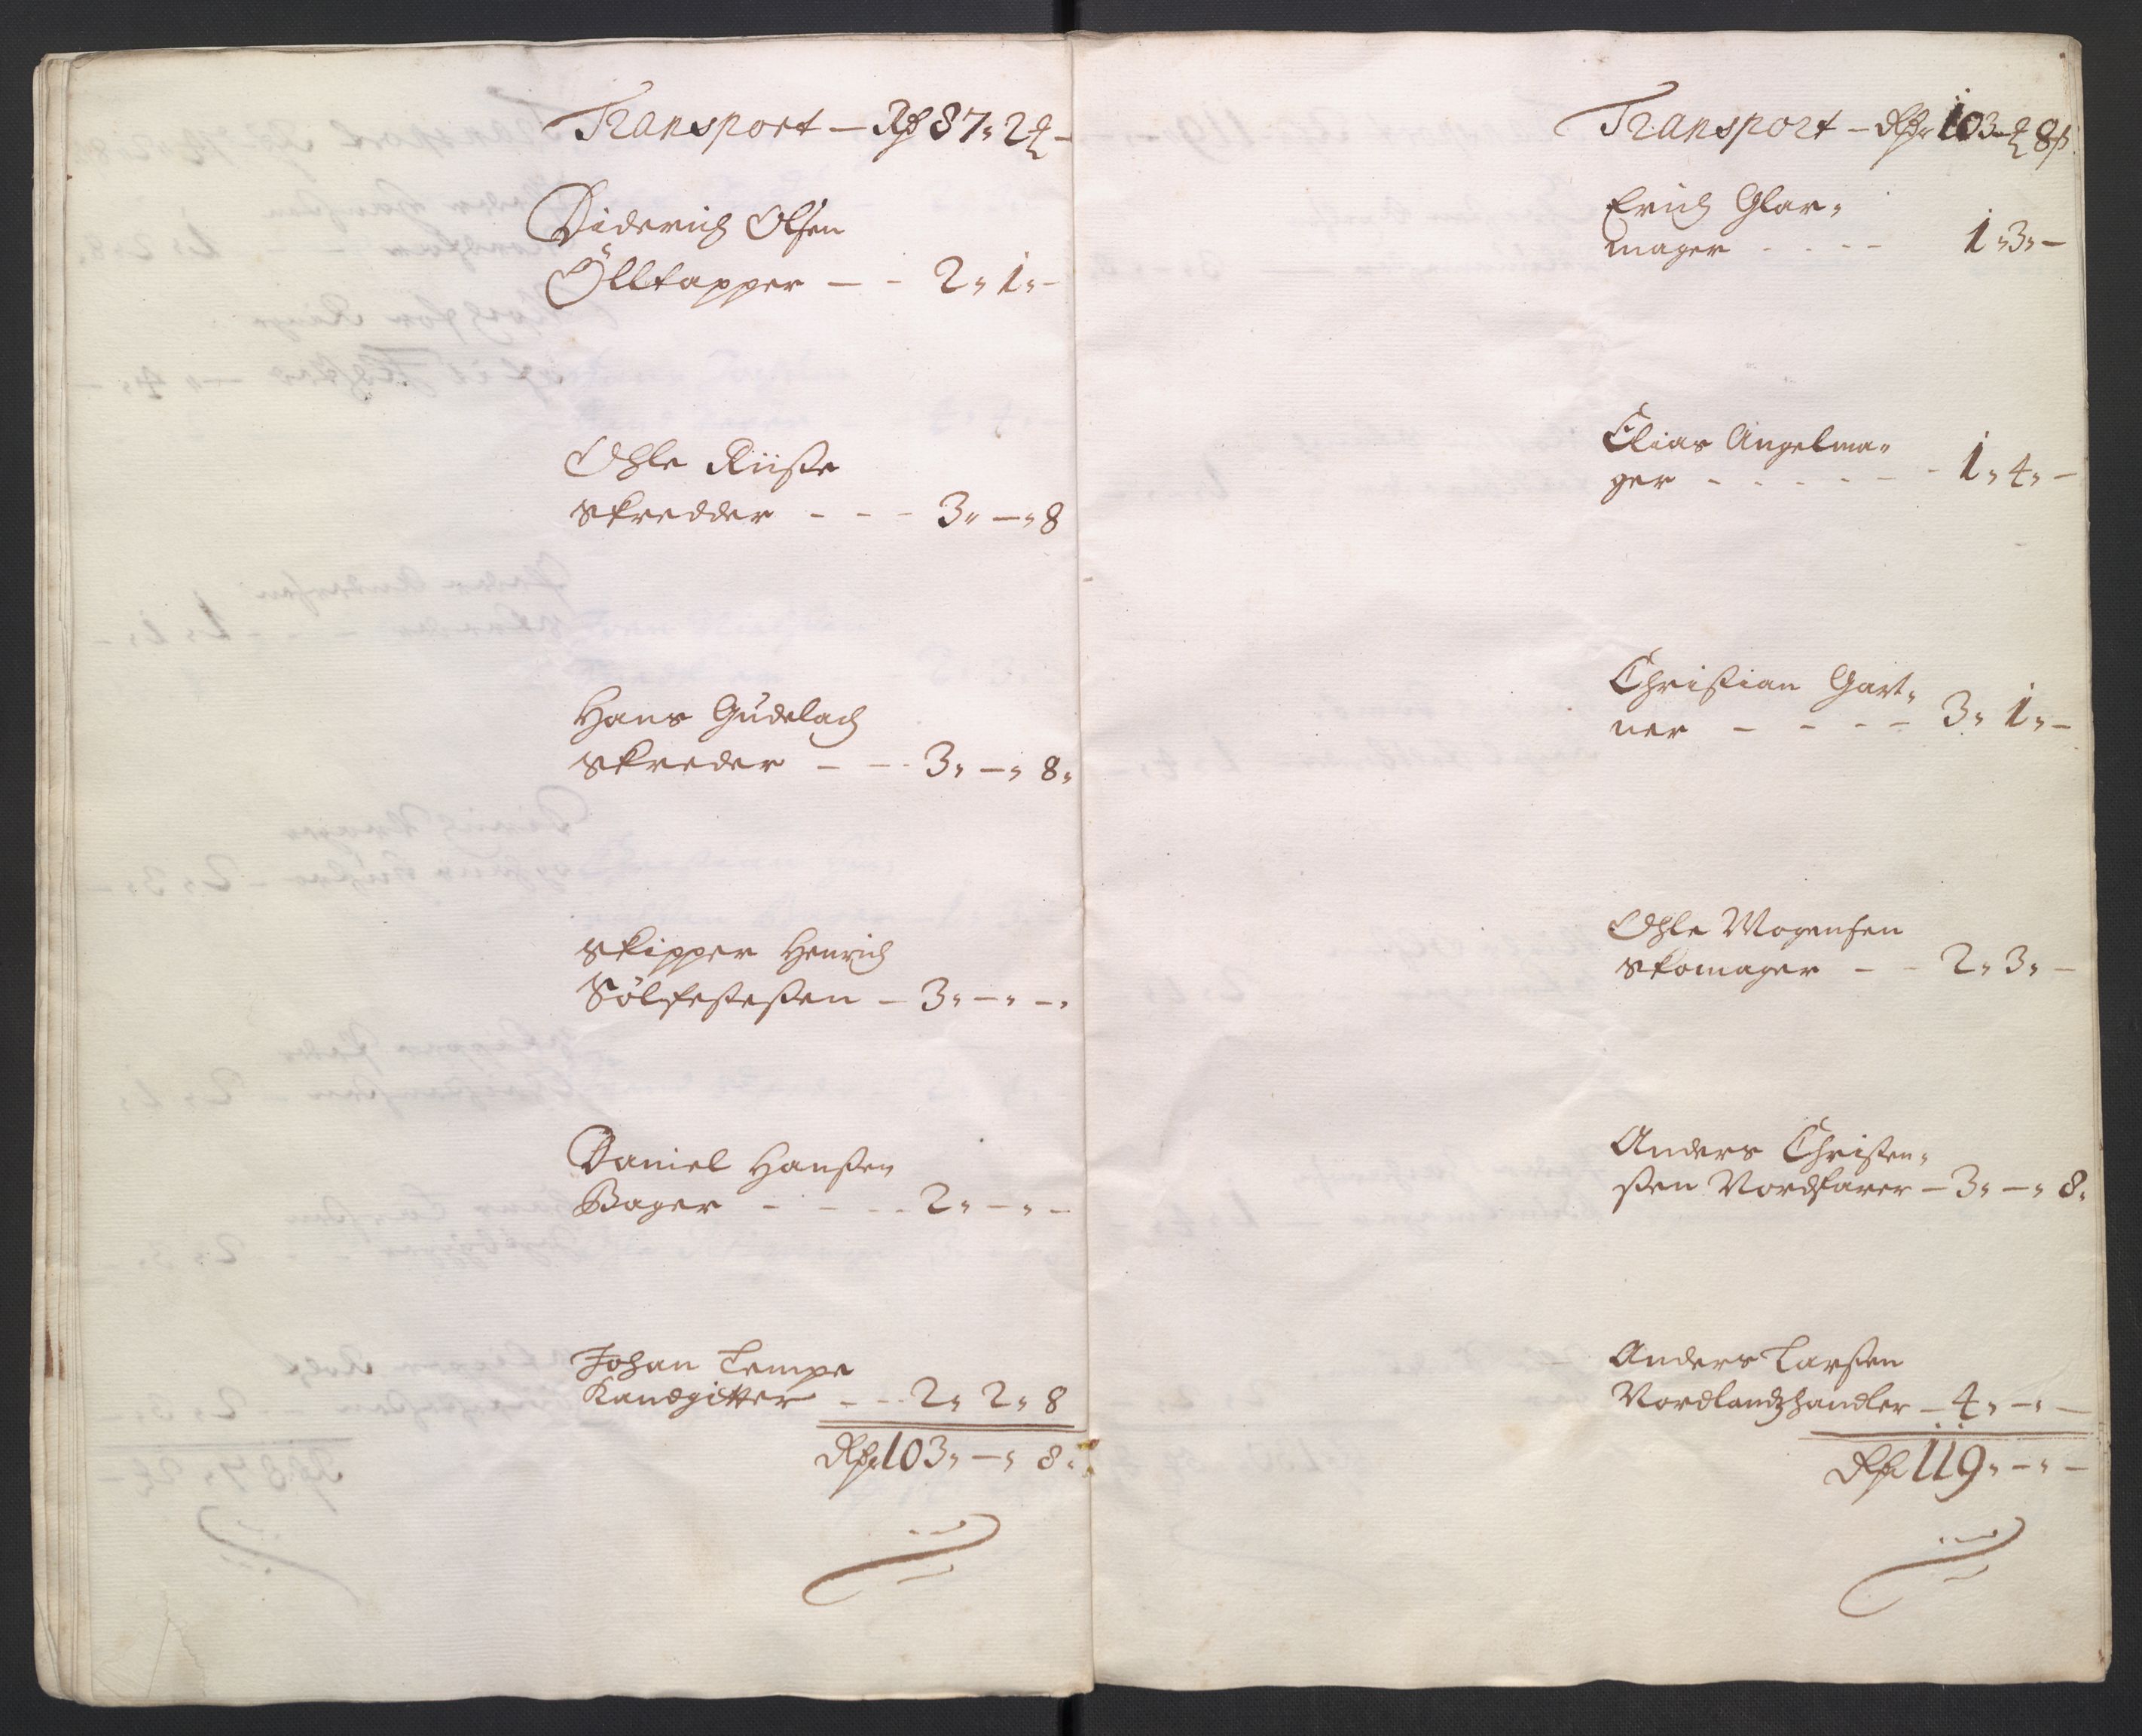 Transport — Rd 87„ 2 ꝗ —
Diderich Olsen
Ölltapper — - 2„ 1„ -
Ohle Riisße
Skredder - - - 3„ —„ 8
Hans Gudelach
Skreder — - - 3„ —„ 8„
Skipper Henrich
Sölfestesßen — 3„ —„ —„
Daniel Hansßen
Bager - - - - 2„ —„ —
Johan Tempe
Kandgitter - - - 2„ 2„ 8
Rdr 103„ —„ 8„
Transport — Rdr 103 — ꝗ 8 ß
Erich Glar„
mager - - - - 1„ 3„ —
Elias Angelma„
ger - - - - - - - 1„ 4„ —
Christian Gart„
ner — - - - - 3„ 1„ —
Ohle Mogensen
Skomager — - 2„ 3„ —
Anders Christen„
sßen Nordfarer — 3„ —„ 8„
Anders Larsßen
Nordlandhandler — 4„ —„ —
Rdr 119„ —„ —